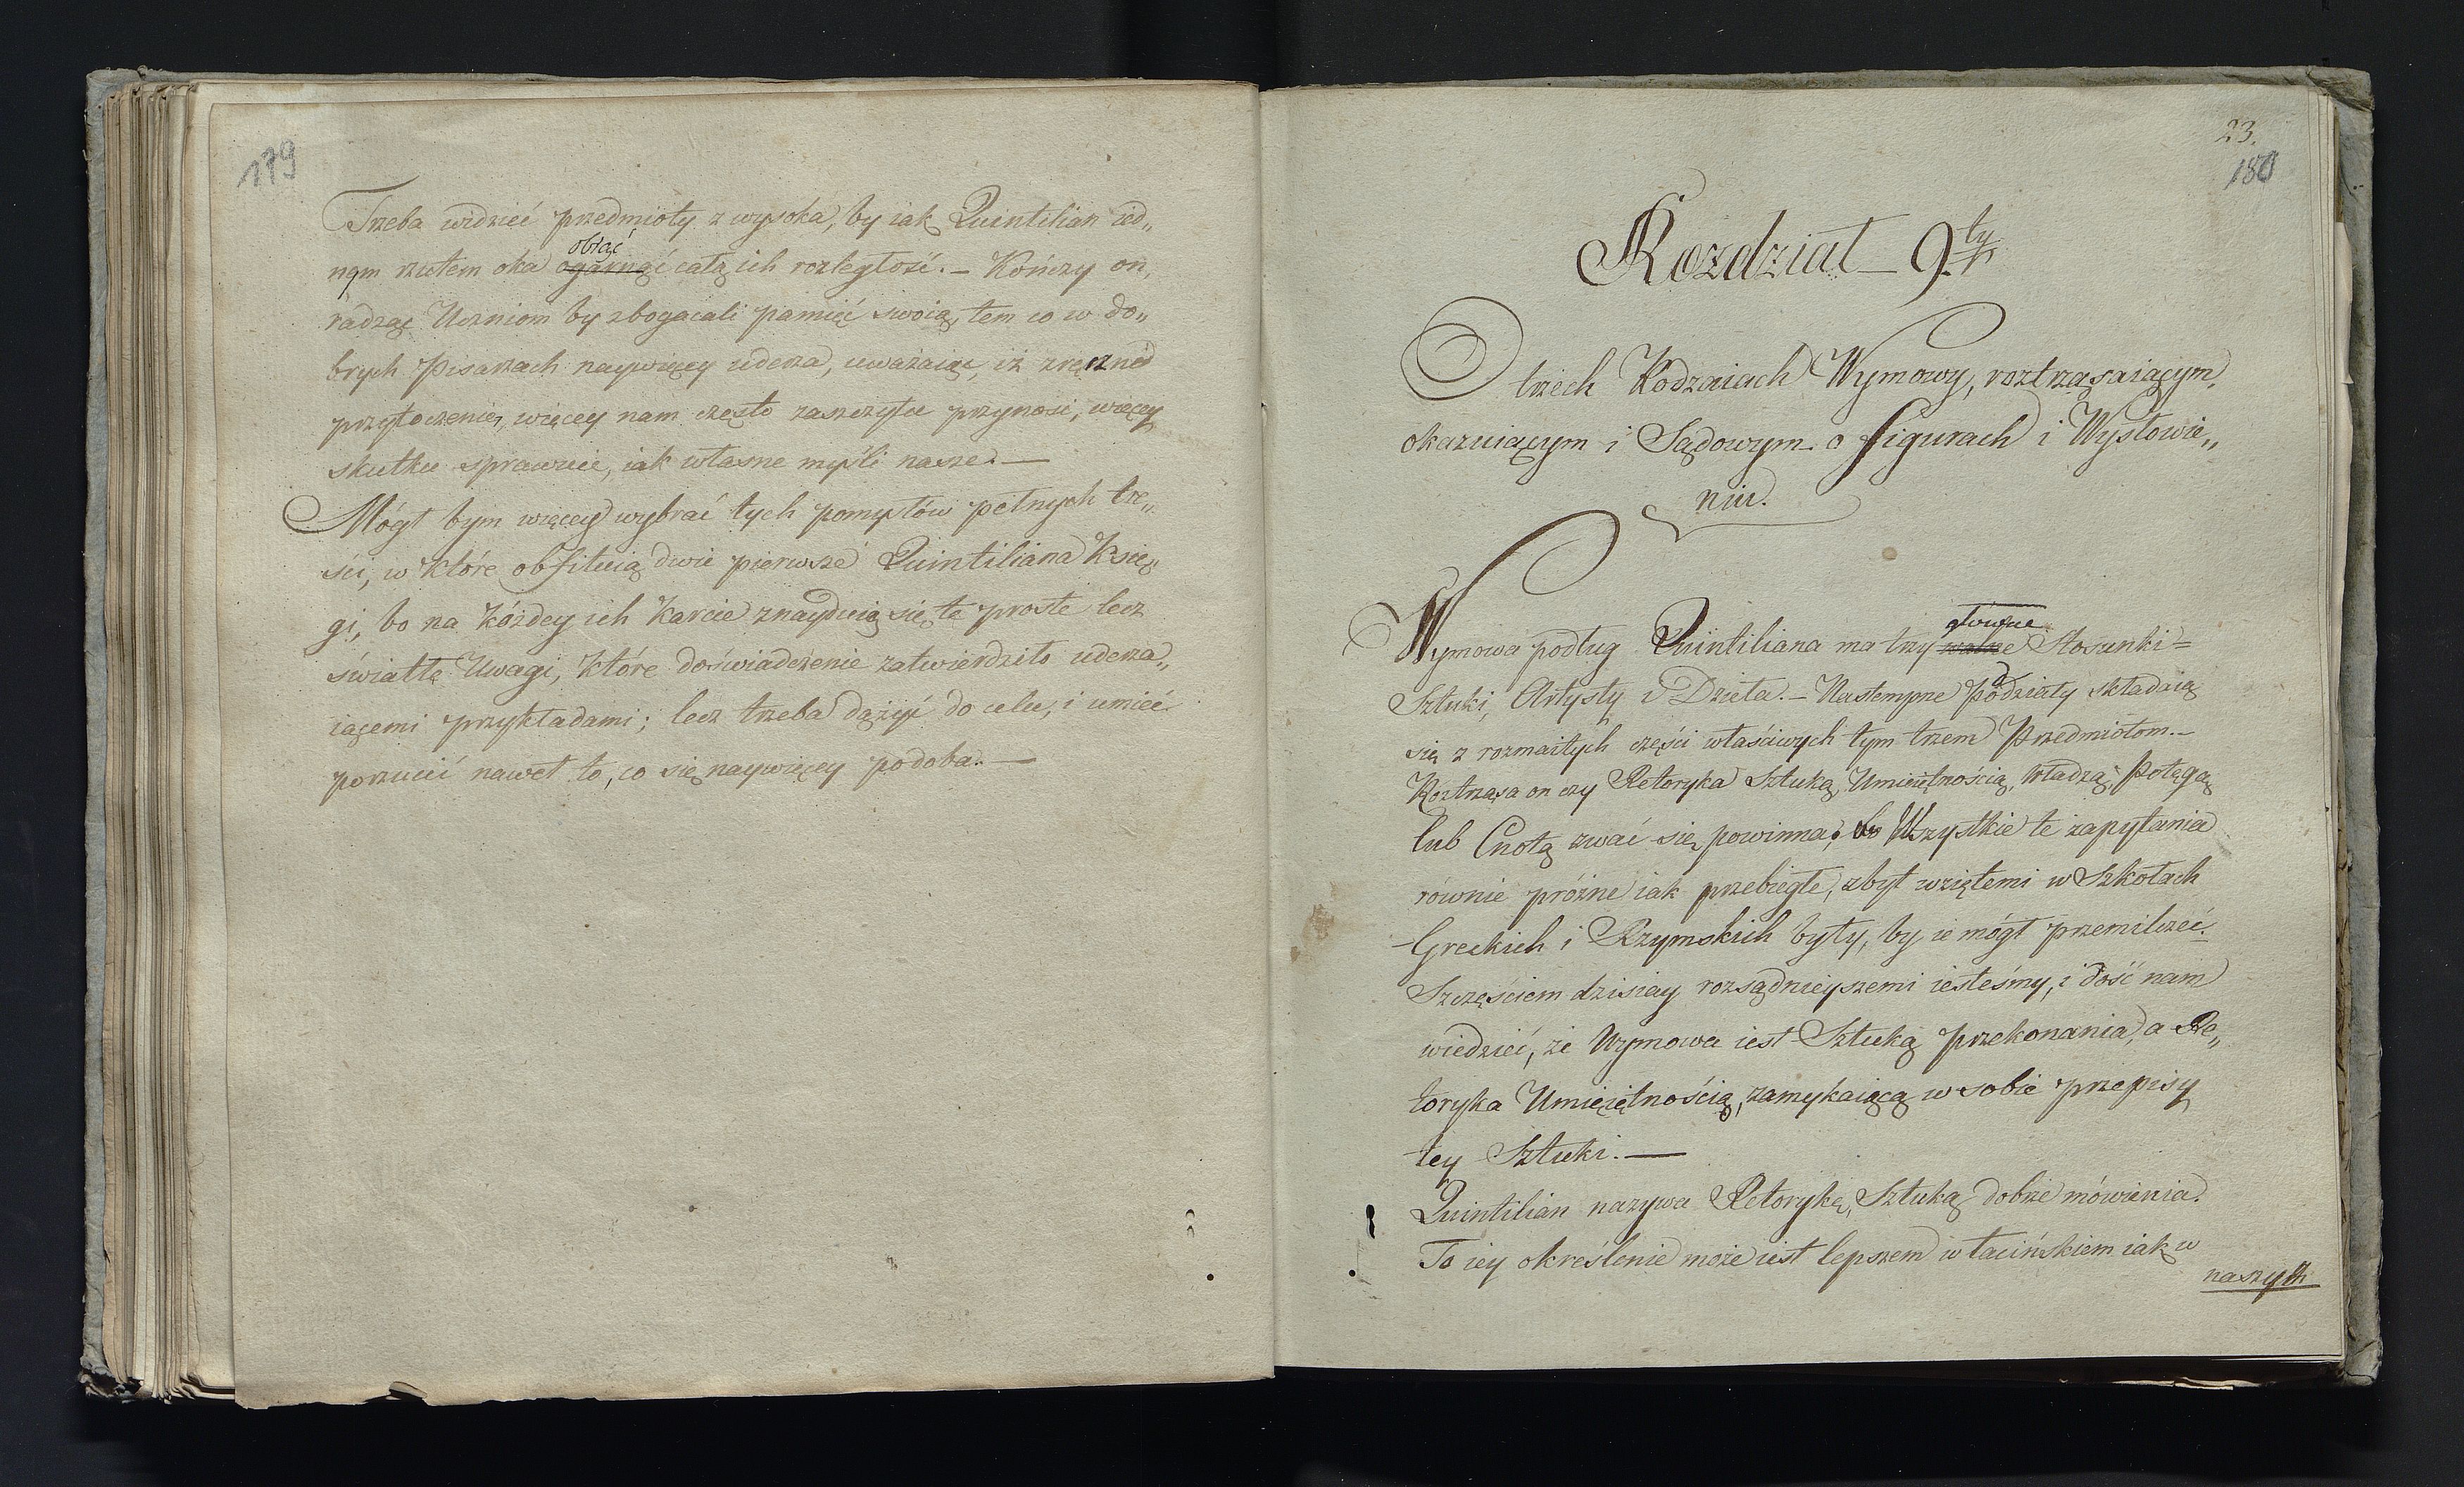 179
Trzeba widzieć przedmioty z wysoka, by iak Quintilian ied„
obiąć
nym rzutem oka ogarnąć całą ich rozległość. – Kończy on,
radząc Uczniom by zbogacali pamięć swoią, tem co w do„
brych Pisarzach naywięcey uderza, uważaiąc, iż zręczne
przytoczenie, więcey nam często zaszczytu przynosi, więcey
skutku sprawuie, iak własne myśli nasze. —
Mógł bym więcey wybrać tych pomysłów pełnych tre„
ści, w które obfituią dwie pierwsze Quintiliana Księ„
gi, bo na kóżdey ich karcie znayduią się te proste lecz
światłe Uwagi, które doświadczenie zatwierdziło uderza„
iącemi przykładami; lecz trzeba dążyć do celu, i umieć
porzucić nawet to, co się naywięcey podoba. —
23.
180
Rozdział – 9.ty
O trzech Rodzaiach Wymowy, roztrząsaiącym,
okazuiącym i Sądowym – o figurach i Wysłowie„
niu.
główne
Wymowa podług Quintiliana ma trzy walne Stosunki =
Sztuki, Artysty i Dzieła. – Nastempne Podziały składaią
się z rozmaitych części właściwych tym trzem Przedmiotom. –
Roztrząsa on czy Retoryka Sztuką, Umieiętnością, Władzą, Potęgą
lub Cnotą zwać się powinna; Wszystkie te zapytania
równie próżne iak przebiegłe, zbyt wziętemi w Szkołach
Greckich i Rzymskich były, by ie mógł przemilczeć.
Szczęściem dzisiay rozsądnieyszemi iesteśmy, i dość nam
wiedzieć, że Wymowa iest Sztuką przekonania, a Re„
toryka Umieiętnością, zamykaiącą w sobie przepisy
tey Sztuki. —
Quintilian nazywa Retorykę, Sztuką dobrze mówienia.
To iey określenie może iest lepszem w łacińskiem iak w
naszych